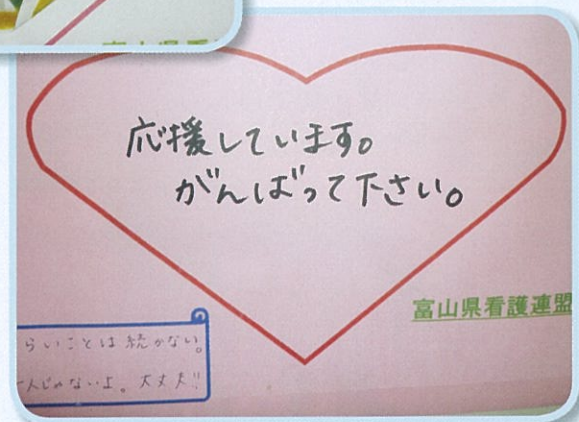 応援しています。
がんばって下さい。
富山県看護連盟
らいことは続かない。
人じゃないよ。大丈夫!!